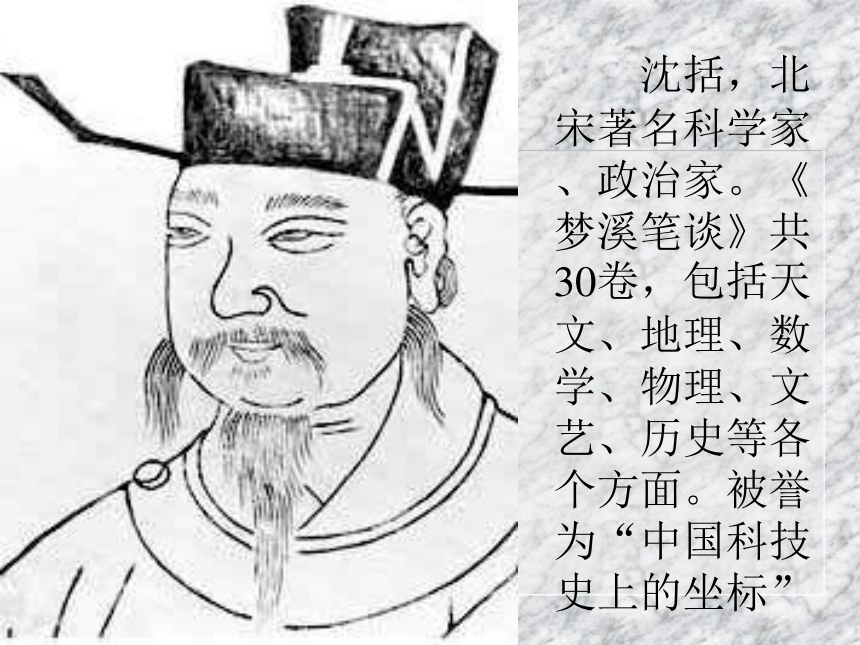 沈括，北
宋著名科学家
、政治家。《
梦溪笔谈》共
30卷，包括天
文、地理、数
学、物理、文
艺、历史等各
个方面。被誉
为“中国科技
史上的坐标”